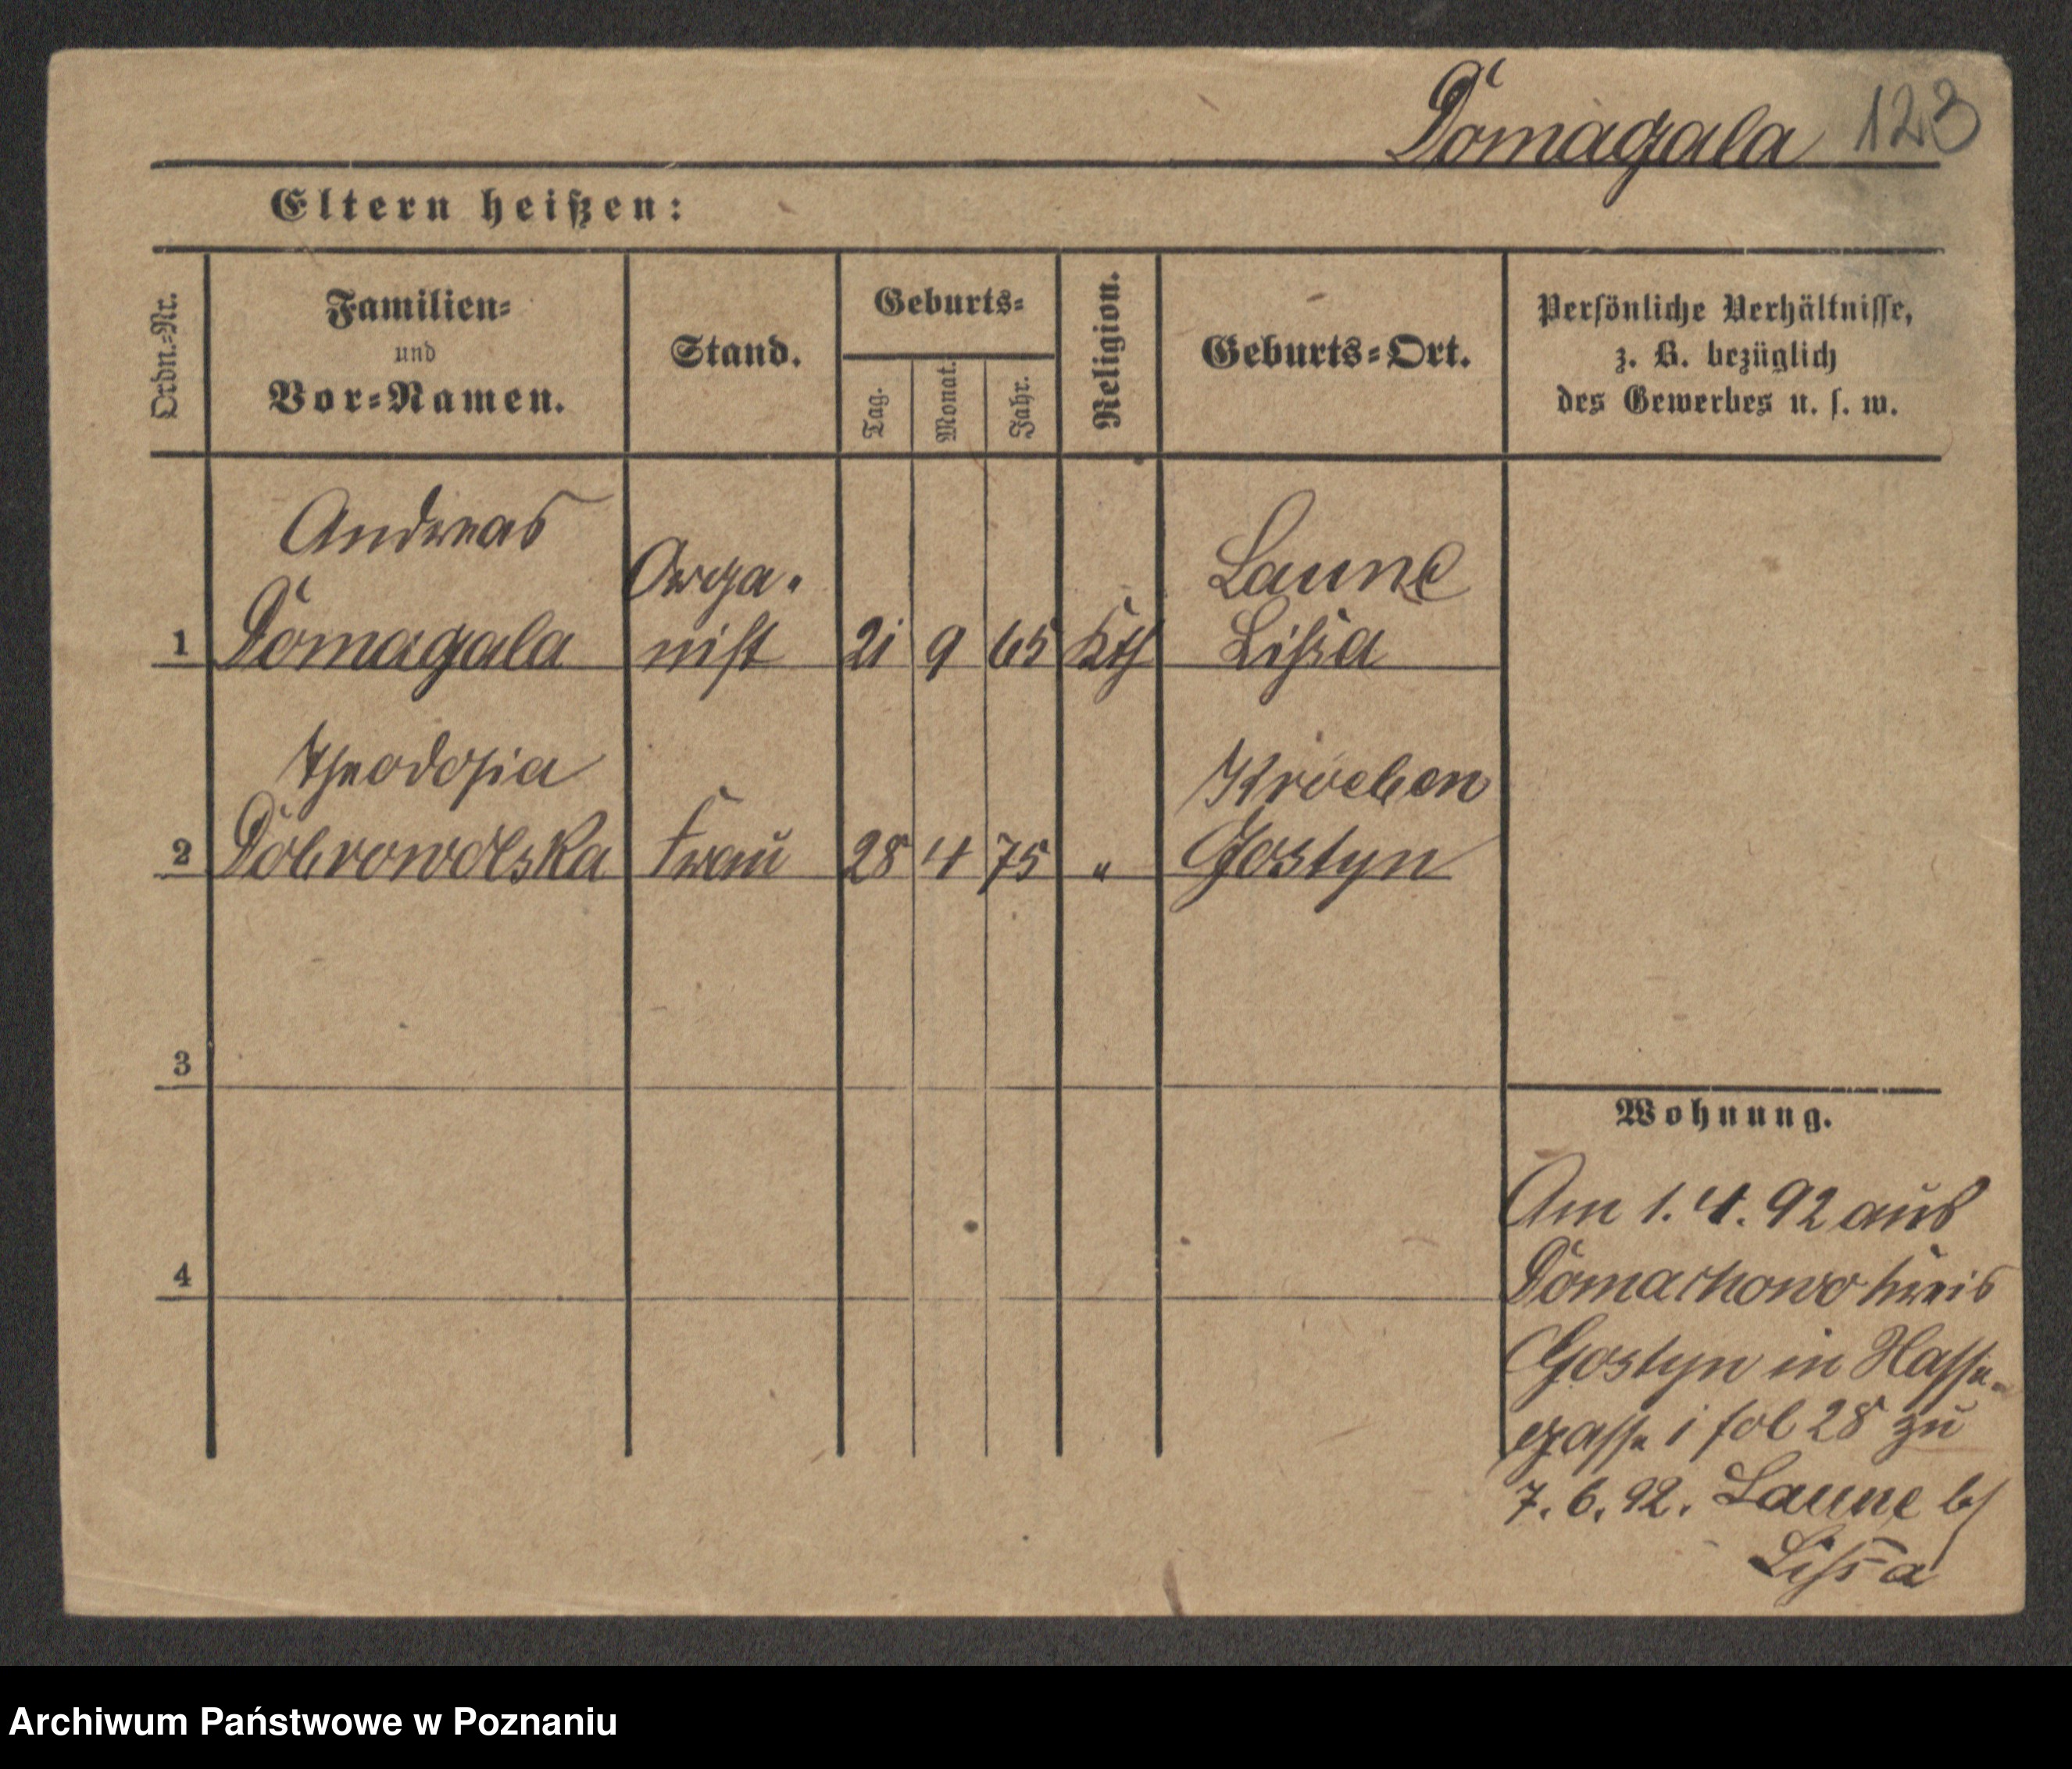 Domagala 123
Eltern heißen:
Ordn.=Nr.
Familien=
und
Vor=Namen.
Stand.
Geburts=
Tag.
Monat.
Jahr.
Religion.
Geburts=Ort.
Persönliche Verhältnisse,
z. B. bezüglich
des Gewerbes u. s. w.
Andreas
Orga-
Laune
1 Domagala nist 21 9 65 Kth Lissa
Theodosia
Kroeben
2 Dobrowolska Frau 28 4 75 " Gostyn
3
4
Wohnung.
Am 1. 4. 92 aus
Domachowo Kreis
Gostyn in
gasse fol 28 zu
7. 6. 92. Laune b/
Lissa
Archiwum Państwowe w Poznaniu